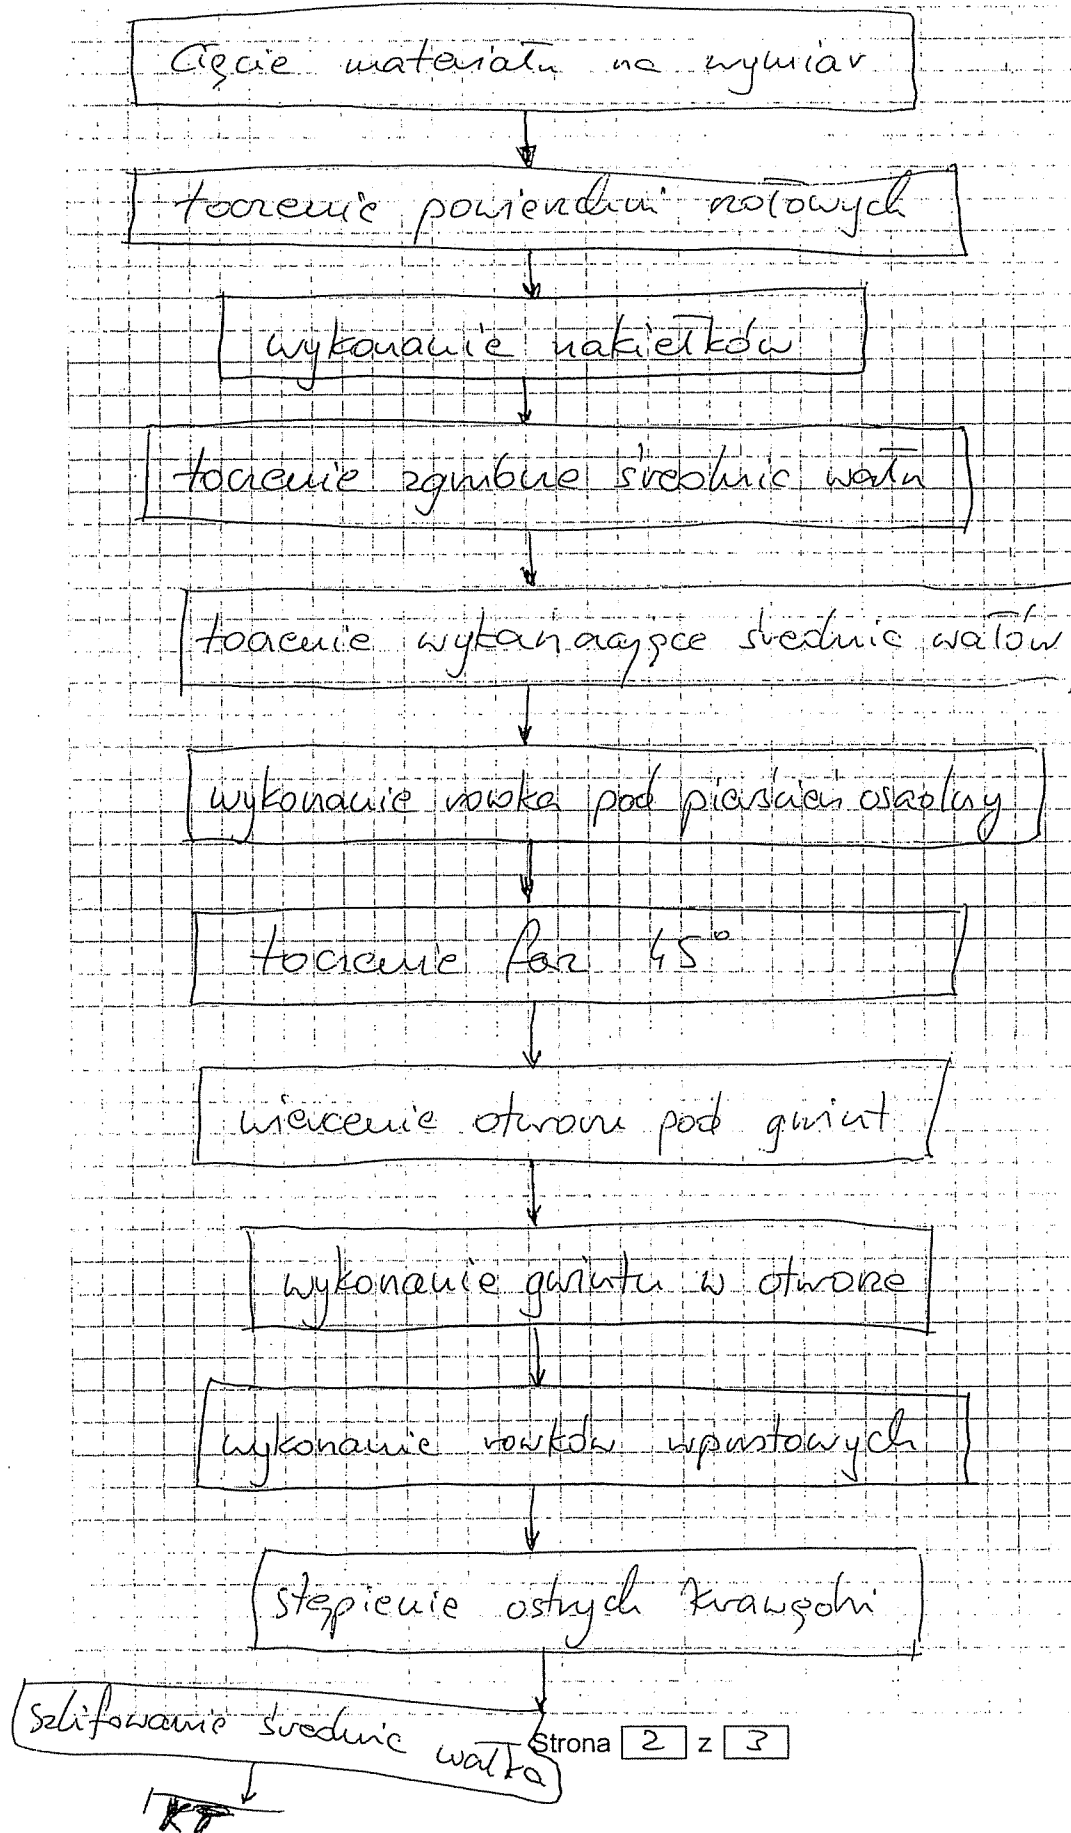 Cięcie materiału na wymiar
toczenie powierzchni czołowych
wykonanie nakiełków
toczenie zgrubne średnic wału
toczenie wykańczające średnic wałów
wykonanie rowka pod pierścień osadczy
toczenie faz 45°
wiercenie otworu pod gwint
wykonanie gwintu w otworze
wykonanie rowków wpustowych
stępienie ostrych krawędzi
szlifowanie średnic wałka
Strona 2 z 3
KT